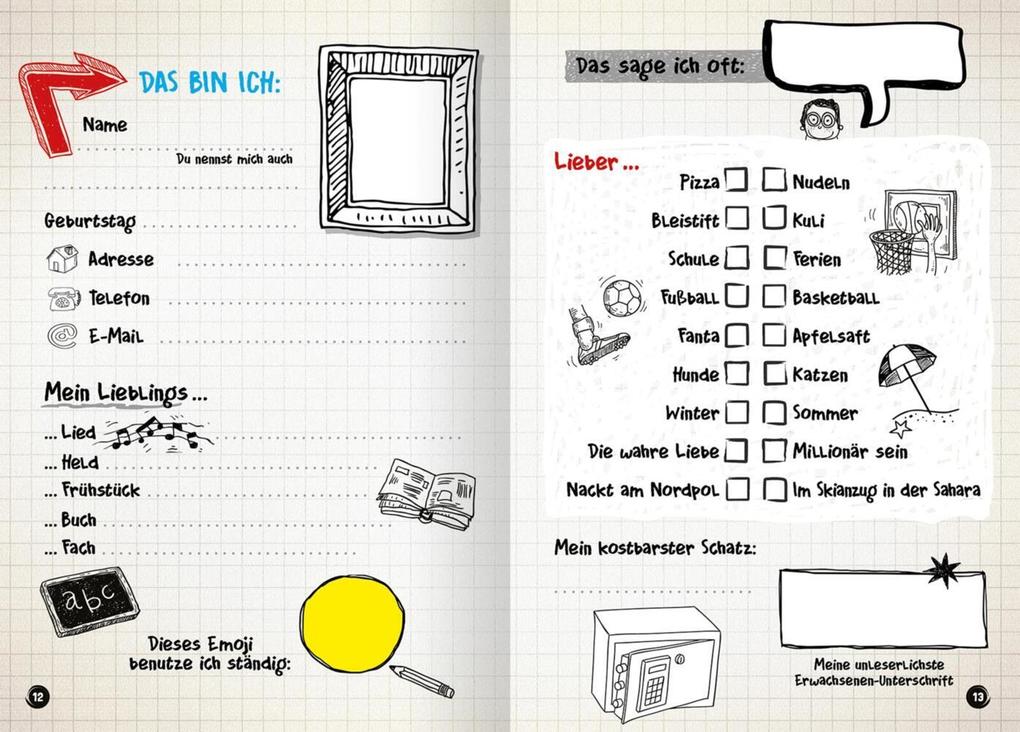 DAS BIN ICH:
Name
Du nennst mich auch
Geburtstag
Adresse
Telefon
@ E-Mail
Mein Lieblings ...
... Lied
... Held
... Frühstück
... Buch
... Fach
abc
Dieses Emoji
benutze ich ständig:
12
Das sage ich oft:
Lieber ...
Pizza Nudeln
Bleistift Kuli
Schule Ferien
Fußball Basketball
Fanta Apfelsaft
Hunde Katzen
Winter Sommer
Die wahre Liebe Millionär sein
Nackt am Nordpol Im Skianzug in der Sahara
Mein kostbarster Schatz:
Meine unleserlichste
Erwachsenen-Unterschrift
13